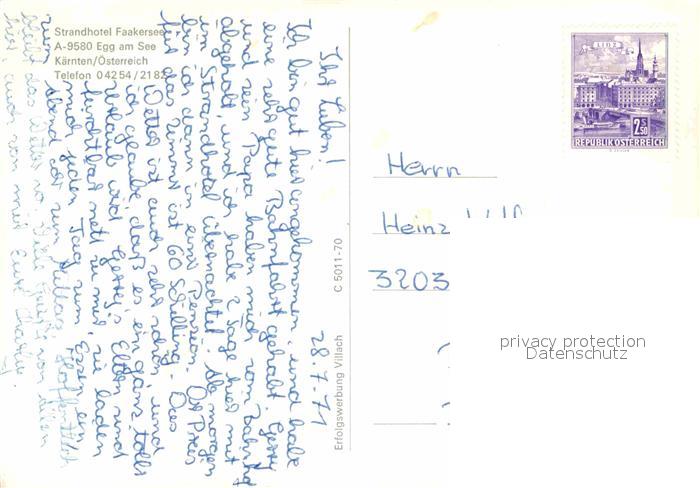 Strandhotel Faakersee
A-9580 Egg am See
Kärnten/Österreich
Telefon 0 42 54 / 21 82
28.7.71
Ihr Lieben!
Ich bin gut hier angekommen, und habe
eine sehr gute Bahnfahrt gehabt. Gerry
und sein Papa haben mich vom Bahnhof
abgeholt, und ich habe 2 Tage hier mit
im Strandhotel übernachtet. Ab morgen
bin ich dann in einer Pension. Der Preis
für das Zimmer ist 60 Schilling. Das
Wetter ist auch sehr schön, und
ich glaube, daß es ein ganz toller
Urlaub wird. Gerry's Eltern sind
furchtbar nett zu mir, sie laden
mich jeden Tag zum Essen ein
zum Abend oder zum Mittag. Hoffentlich
bleibt das Wetter so. Viele Grüße von allen
hier, auch von mir Eure
Erfolgswerbung Villach C 5011-70
LINZ
2.50
REPUBLIK ÖSTERREICH
Herrn
Heinz
3203
privacy protection
Datenschutz